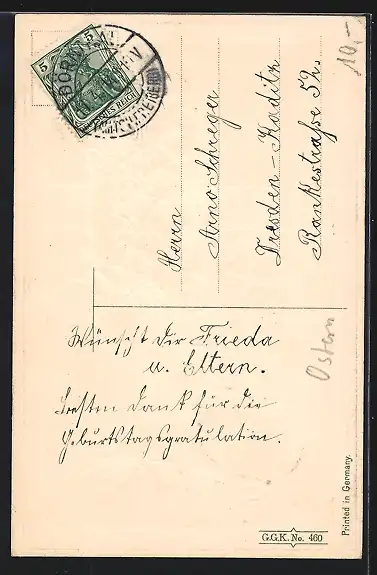 10,-
5
5
Herrn
Arno Schreger
Dresden-Kaditz
Rankestraße 52.
Ostern
Wünscht dir Frieda
u. Eltern.
Besten Dank für die
Geburtstagsgratulation.
G.G.K. No. 460
Printed in Germany.